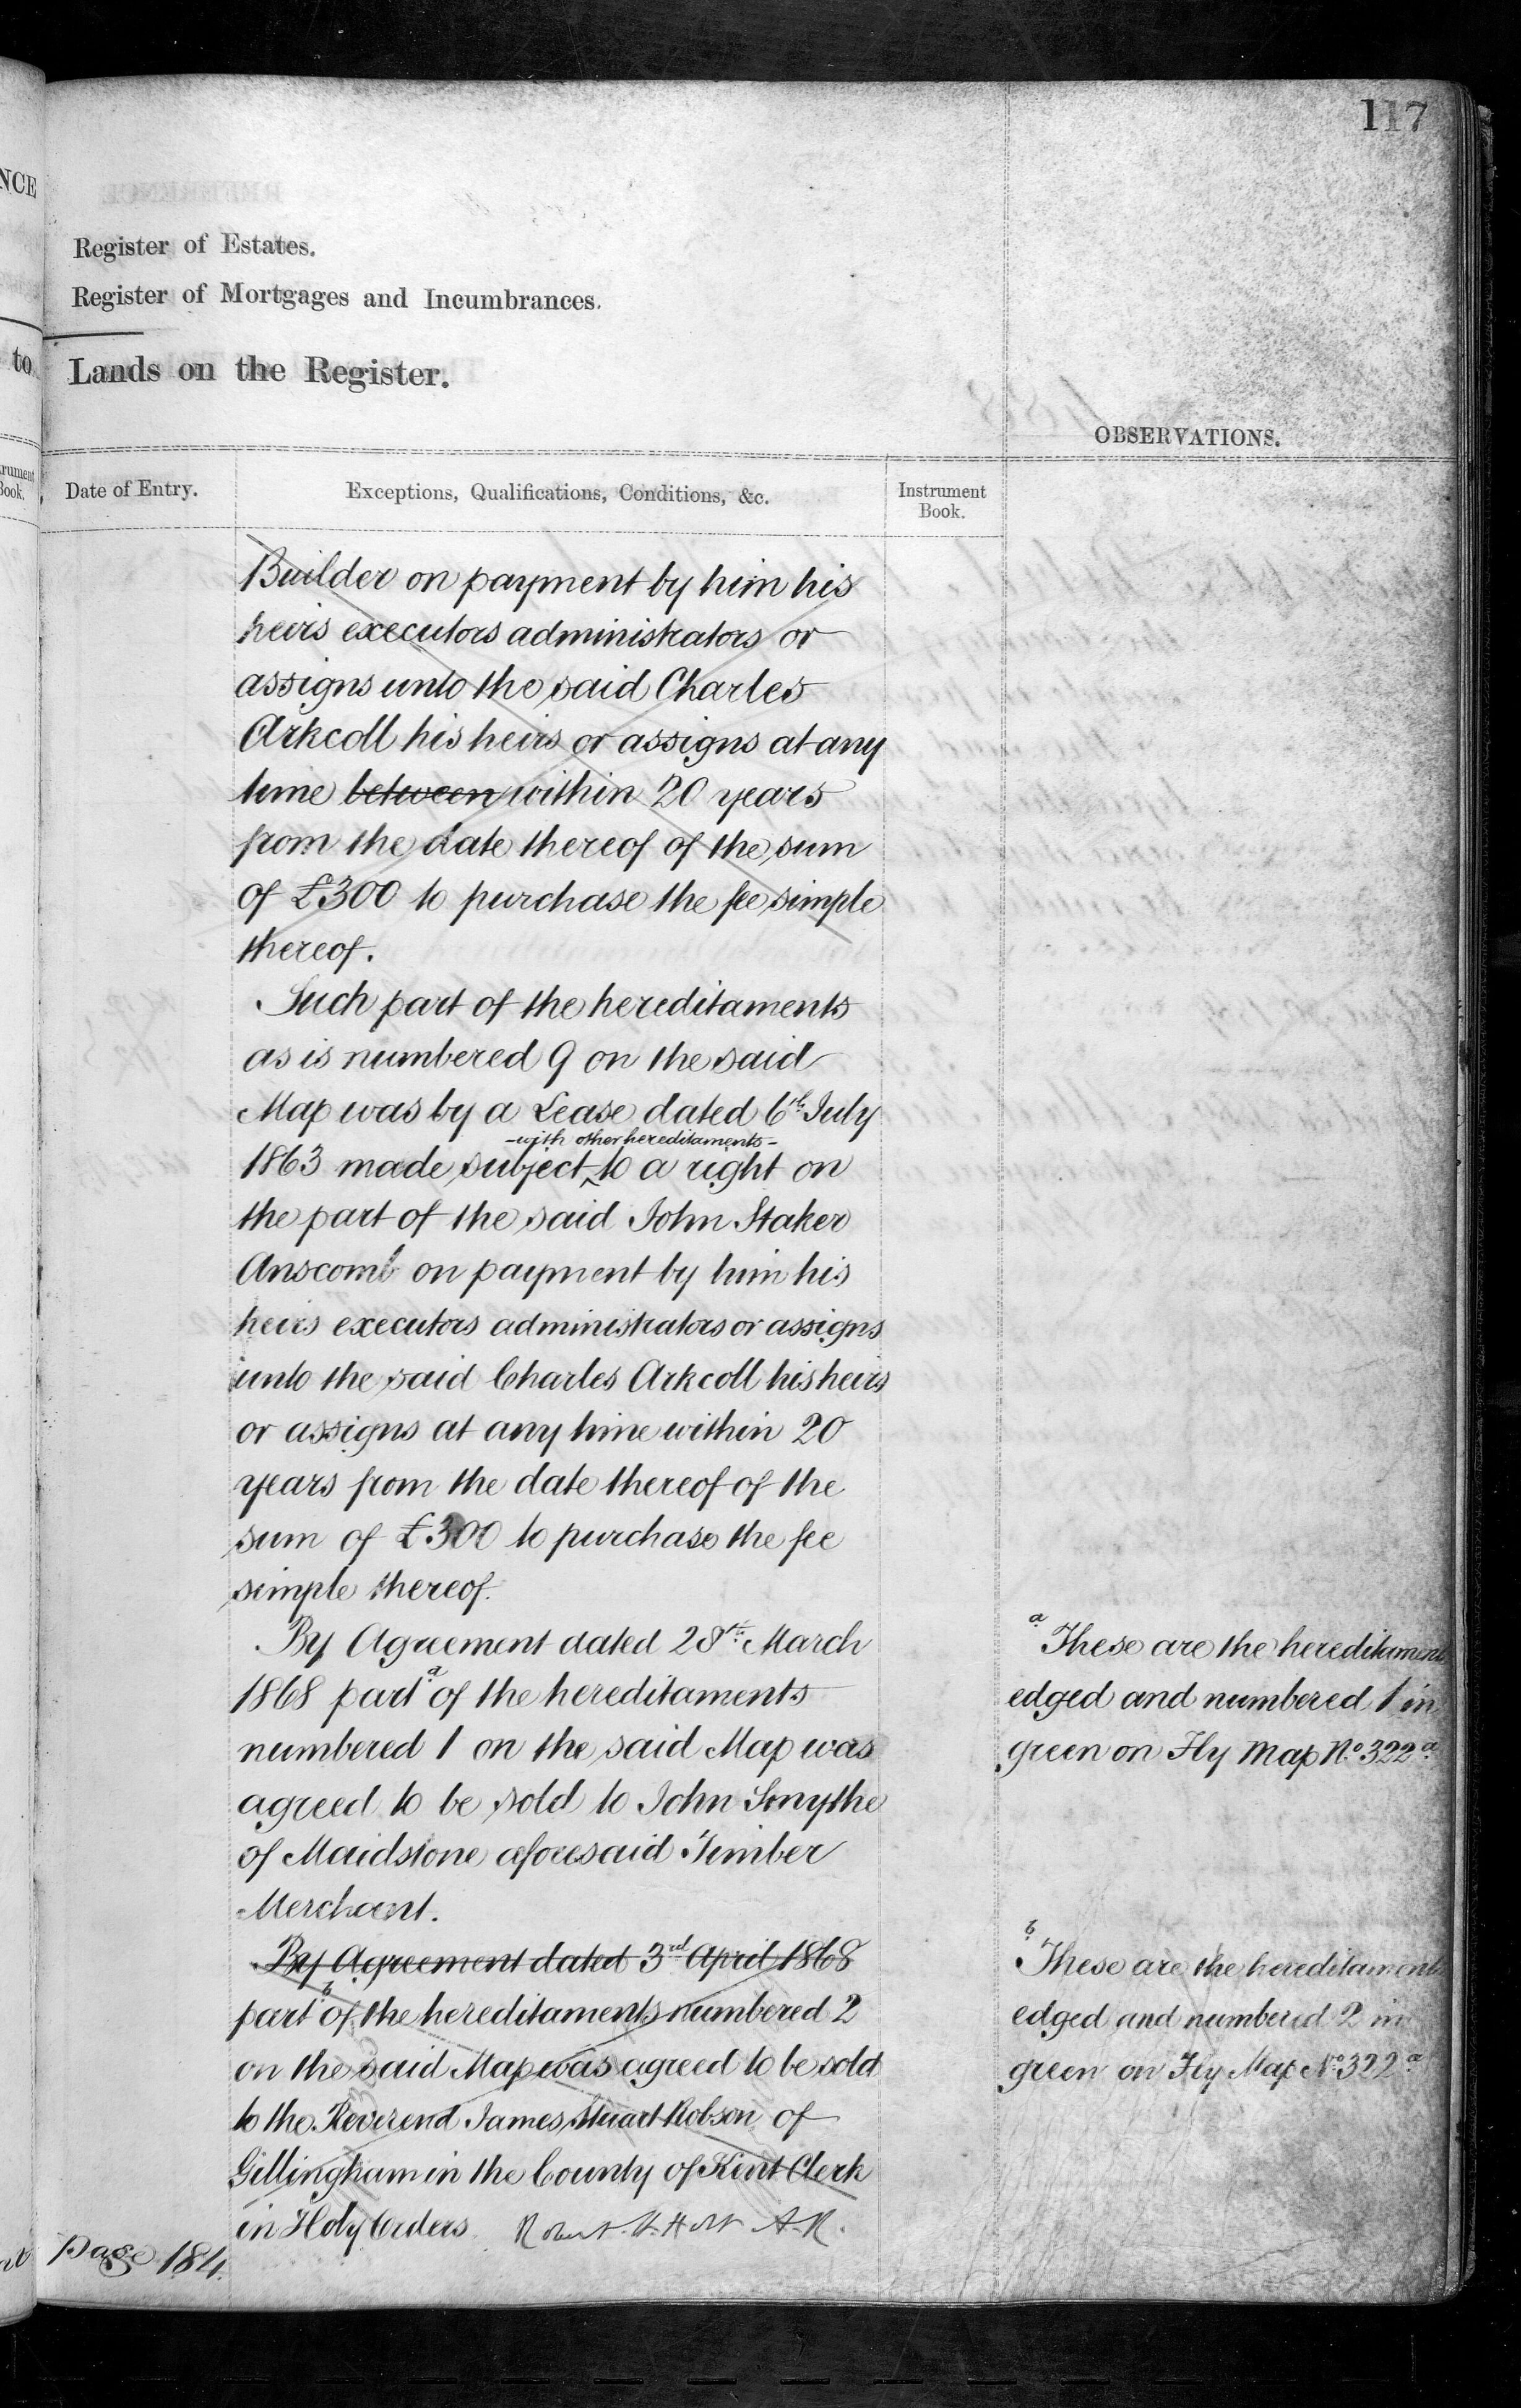 117
NCE
Register of Estates.
Register of Mortgages and Incumbrances.
to
Lands on the Register.
OBSERVATIONS.
Date of Entry.
Exceptions, Qualifications, Conditions, &c.
Instrument
Book.
Builder on payment by him his
heirs executors administrators or
assigns unto the said Charles
Arkcoll his heirs or assigns at any
time between within 20 years
from the date thereof of the sum
of £300 to purchase the fee simple
thereof.
Such part of the hereditaments
as is numbered 9 on the said
Map was by a Lease dated 6th July
-with other hereditaments-
1863 made subject to a right on
the part of the said John Staker
Anscomb on payment by him his
heirs executors administrators or assigns
unto the said Charles Arkcoll his heirs
or assigns at any time within 20
years from the date thereof of the
sum of £300 to purchase the fee
simple thereof.
By Agreement dated 28th March
1868 part a of the hereditaments
numbered 1 on the said Map was
agreed to be sold to John Smythe
of Maidstone aforesaid Timber
Merchant.
By Agreement dated 3rd April 1868
part b of the hereditaments numbered 2
on the said Map was agreed to be sold
to the Reverend James Stuart Robson of
Gillingham in the County of Kent Clerk
in Holy Orders
a These are the hereditaments
edged and numbered 1 in
green on Fly Map No. 322a
b These are the hereditaments
edged and numbered 2 in
green on Fly Map No. 322a
Page 184